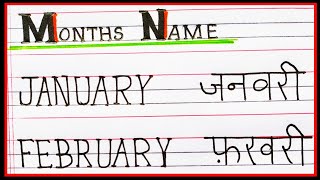 MONTHS NAME
JANUARY जनवरी
FEBRUARY फ़रवरी